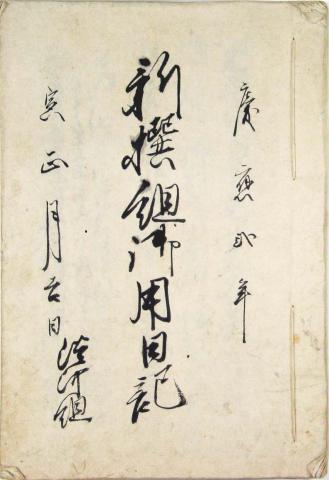 慶應弐年
新撰組御用日記
寅正月吉日
組